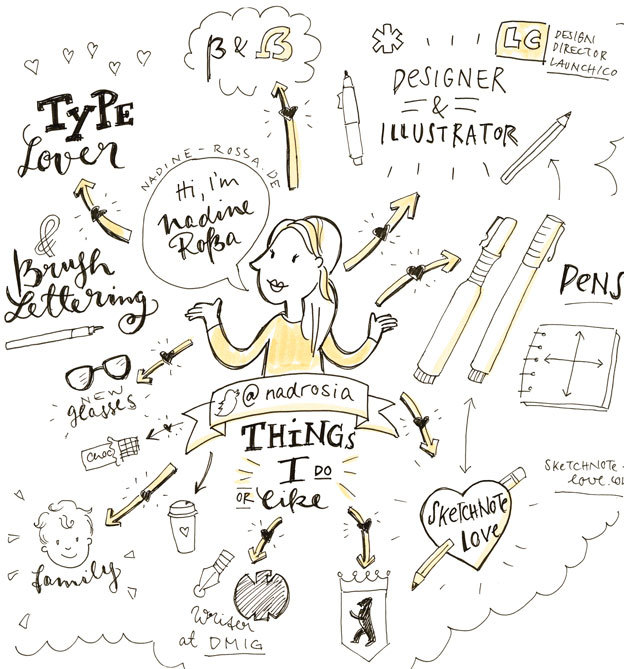 β & ß
LC
DESIGN
DIRECTOR
LAUNCH/CO
TYPE
Lover
DESIGNER
&
ILLUSTRATOR
NADINE-ROSSA.DE
Hi, i'm
Nadine
Roßa
&
Brush
Lettering
PENS
NEW
glasses
@nadrosia
THINGS
I DO
OR like
SKETCHNOTE-
LOVE.CO
SKETCHNOTE
LOVE
family
Writer
at DMIG